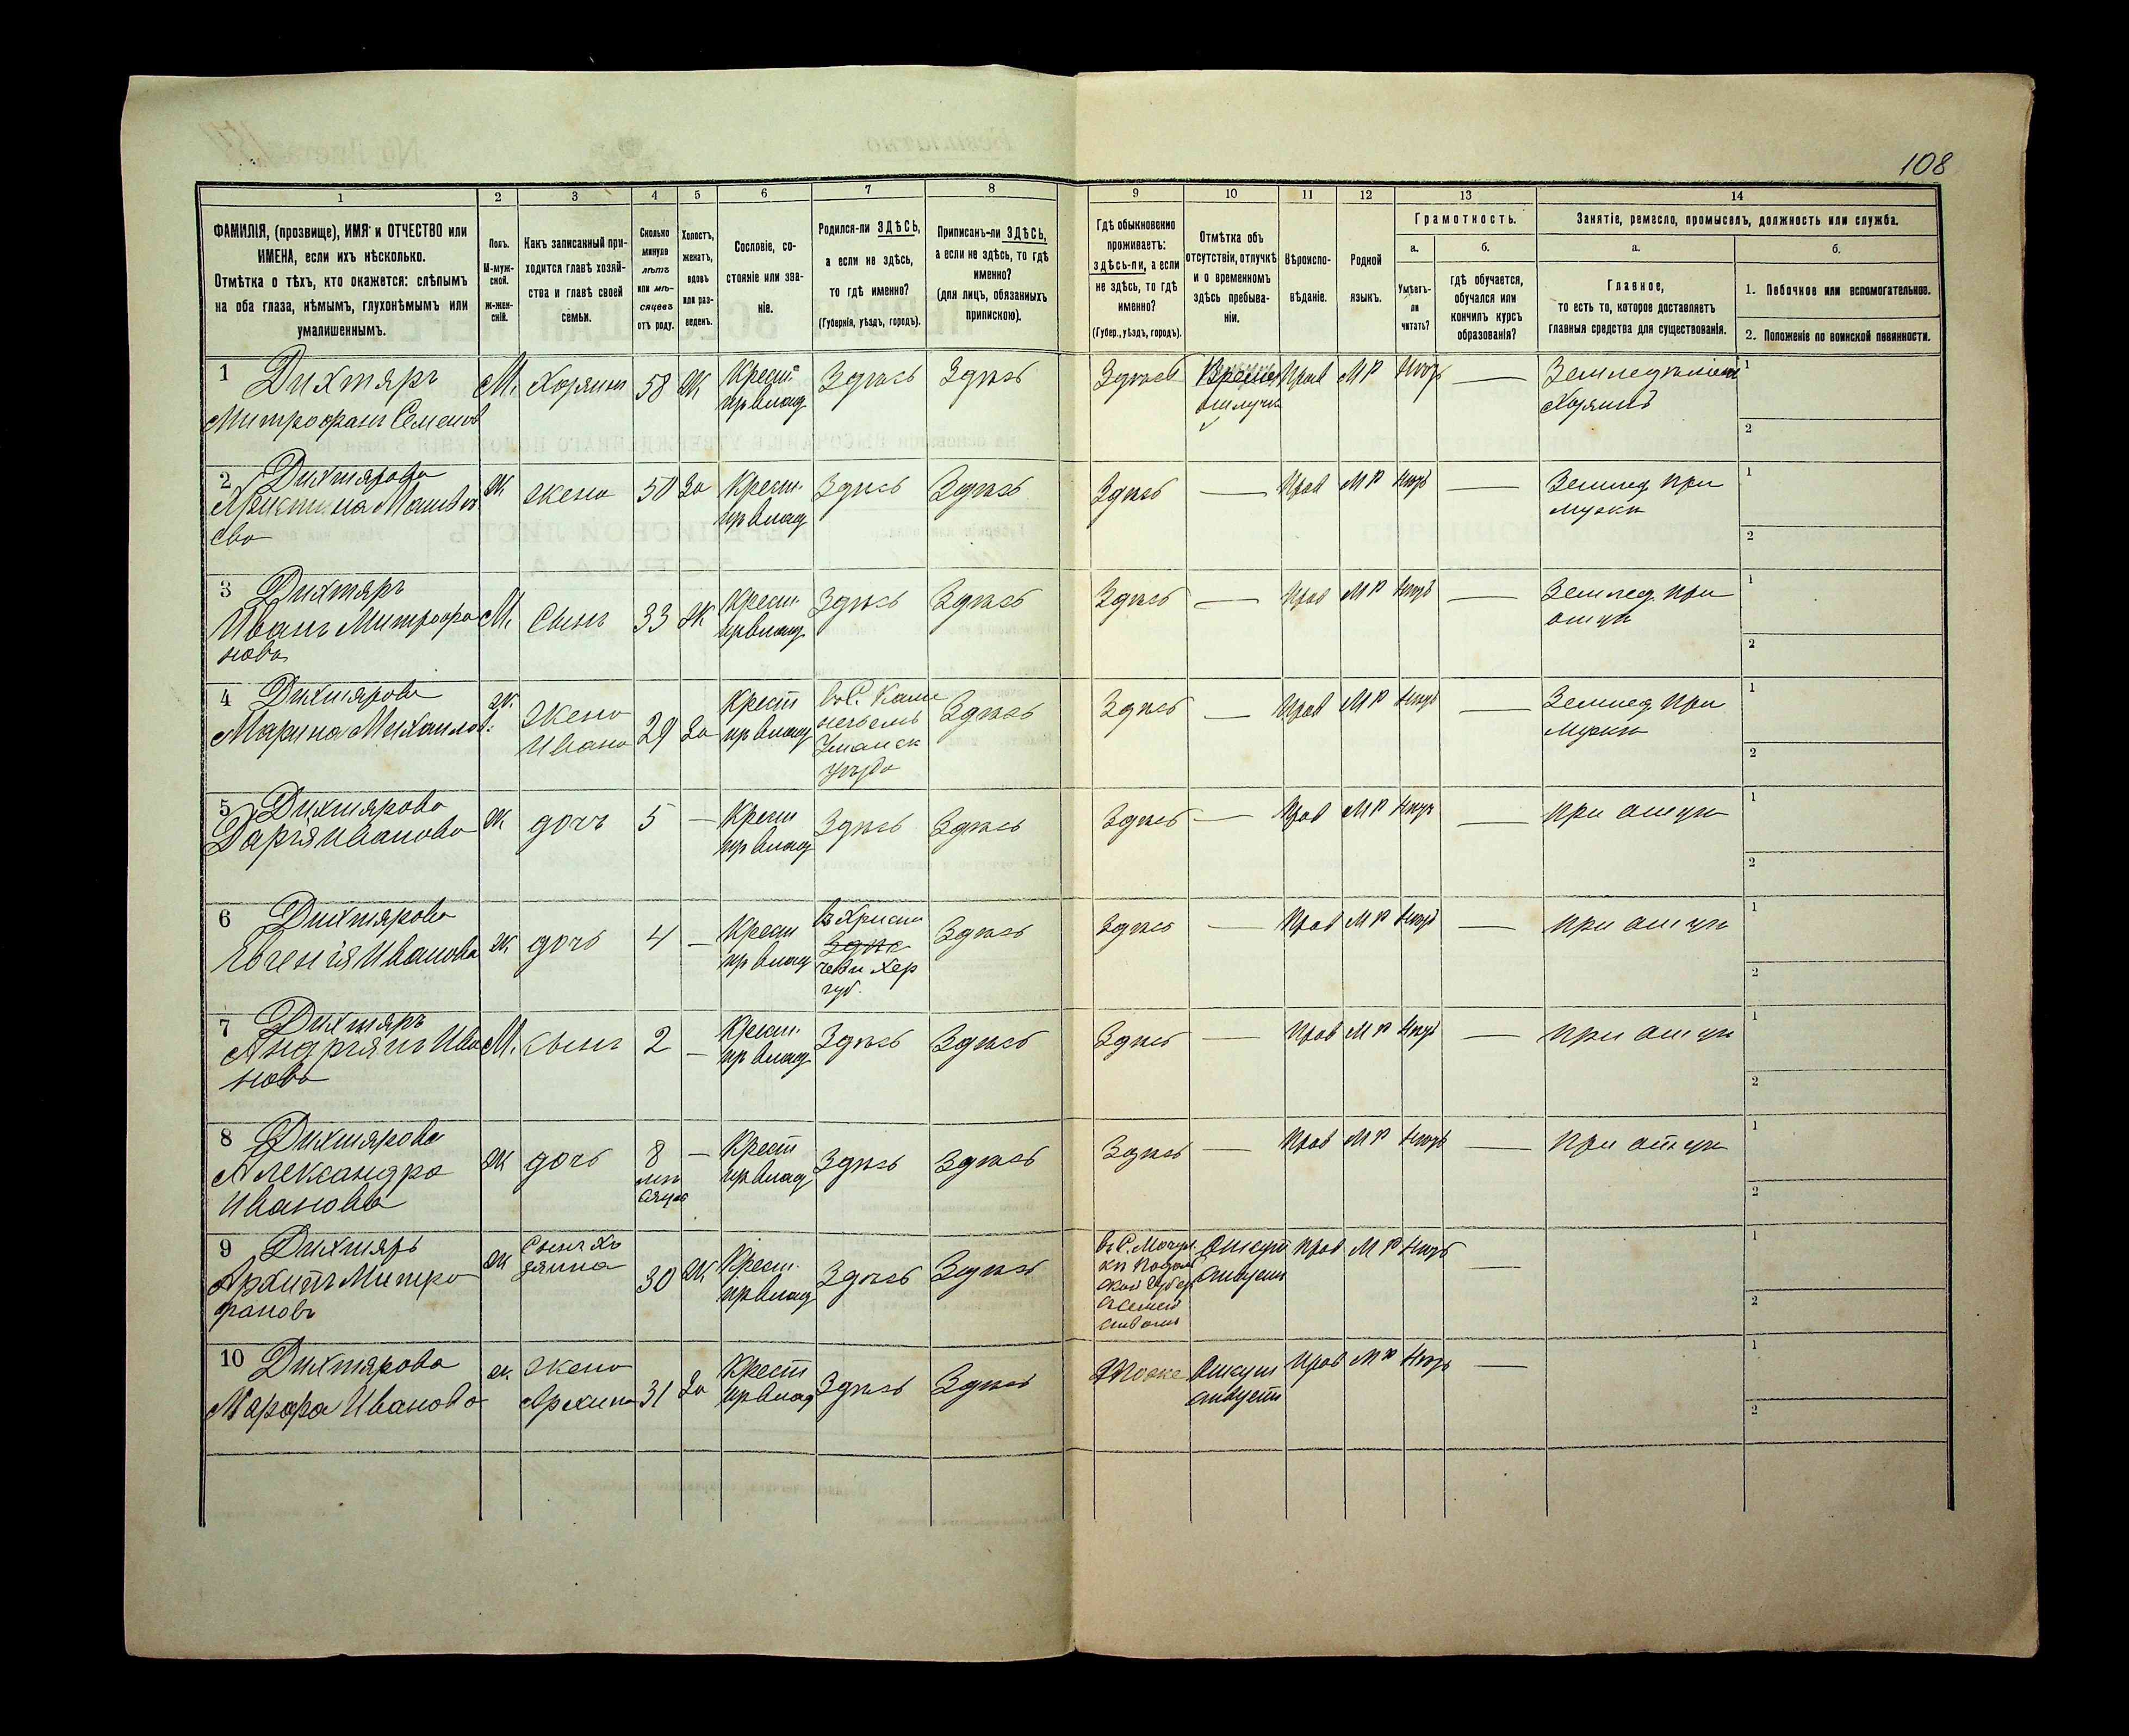 108
1
2
3
4
5
6
7
8
9
10
11
12
13
14
ФАМИЛІЯ, (прозвище), ИМЯ и ОТЧЕСТВО или
ИМЕНА, если ихъ нѣсколько.
Отмѣтка о тѣхъ, кто окажется: слѣпымъ
на оба глаза, нѣмымъ, глухонѣмымъ или
умалишеннымъ.
Полъ.
М-муж-
ской.
Ж-жен-
скій.
Какъ записанный при-
ходится главѣ хозяй-
ства и главѣ своей
семьи.
Сколько
минуло
лѣтъ
или мѣ-
сяцевъ
отъ роду.
Холостъ,
женатъ,
вдовъ
или раз-
веденъ.
Сословіе, со-
стояніе или зва-
ніе.
Родился-ли ЗДѢСЬ,
а если не здѣсь,
то гдѣ именно?
(Губернія, уѣздъ, городъ).
Приписанъ-ли ЗДѢСЬ,
а если не здѣсь, то гдѣ
именно?
(для лицъ, обязанныхъ
припискою).
Гдѣ обыкновенно
проживаетъ:
здѣсь-ли, а если
не здѣсь, то гдѣ
именно?
(Губер., уѣздъ, городъ).
Отмѣтка объ
отсутствіи, отлучкѣ
и о временномъ
здѣсь пребыва-
ніи.
Вѣроиспо-
вѣданіе.
Родной
языкъ.
Грамотность.
а.
Умѣетъ-
ли
читать?
б.
гдѣ обучается,
обучался или
кончилъ курсъ
образованія?
Занятіе, ремесло, промыселъ, должность или служба.
а.
Главное,
то есть то, которое доставляетъ
главныя средства для существованія.
б.
1. Побочное или вспомогательное.
2. Положеніе по воинской повинности.
1 Дихтяръ
Митрофанъ Семенов
М. Хозяин 58 Ж
Крест.
пр влад
Здѣсь Здѣсь Здѣсь
Времен
отлучк
Прав М Р Нѣтъ —
Земледѣліем
Хозяинъ
1
2
2 Дихтярова
Матвѣ
ева
Ж жена 50 За
Крест.
пр влад
Здѣсь Здѣсь Здѣсь — Прав М Р Нѣтъ —
Землед при
мужѣ
1
2
3 Дихтяръ
Иванъ Митрофа
новъ
М. Сынъ 33 Ж
Крест.
пр влад
Здѣсь Здѣсь Здѣсь — Прав М Р Нѣтъ —
Землед. при
отцѣ
1
2
4 Дихтярова
Марина Михаилов.
Ж.
Жена
Ивана
29 За
Крест
пр влад
въ С.
Уманск
уѣзда
Здѣсь Здѣсь — Прав М Р Нѣтъ —
Землед при
мужѣ
1
2
5 Дихтярова
Дарія Иванова
Ж дочъ 5 —
Крест
пр влад
Здѣсь Здѣсь Здѣсь — Прав М Р Нѣтъ — при отцѣ
1
2
6 Дихтярова
Евгенія Иванова
Ж дочь 4 —
Крест
пр влад
Здѣс
Хер
губ.
Здѣсь Здѣсь — Прав М Р Нѣтъ — при отцѣ
1
2
7 Дихтяръ
Андріянъ Ива
новъ
М. Сынъ 2 —
Крест.
пр влад
Здѣсь Здѣсь Здѣсь — Прав М Р Нѣтъ — при отцѣ
1
2
8 Дихтярова
Александра
Иванова
Ж дочь
8
мѣ
сяцев
—
Крест
пр влад
Здѣсь Здѣсь Здѣсь — Прав М Р Нѣтъ — при отцѣ
1
2
9 Дихтяръ
Архипъ Митро
фановъ
Ж
Сынъ Хо
зяина
30 Ж
Крест.
пр влад
Здѣсь Здѣсь
Подоль
ской Губер
Прав М Р Нѣтъ —
1
2
10 Дихтярова
Марфа Иванова
Ж.
Жена
Архипа
31 За
Крест
пр влад
Здѣсь Здѣсь
Прав М Р Нѣтъ —
1
2